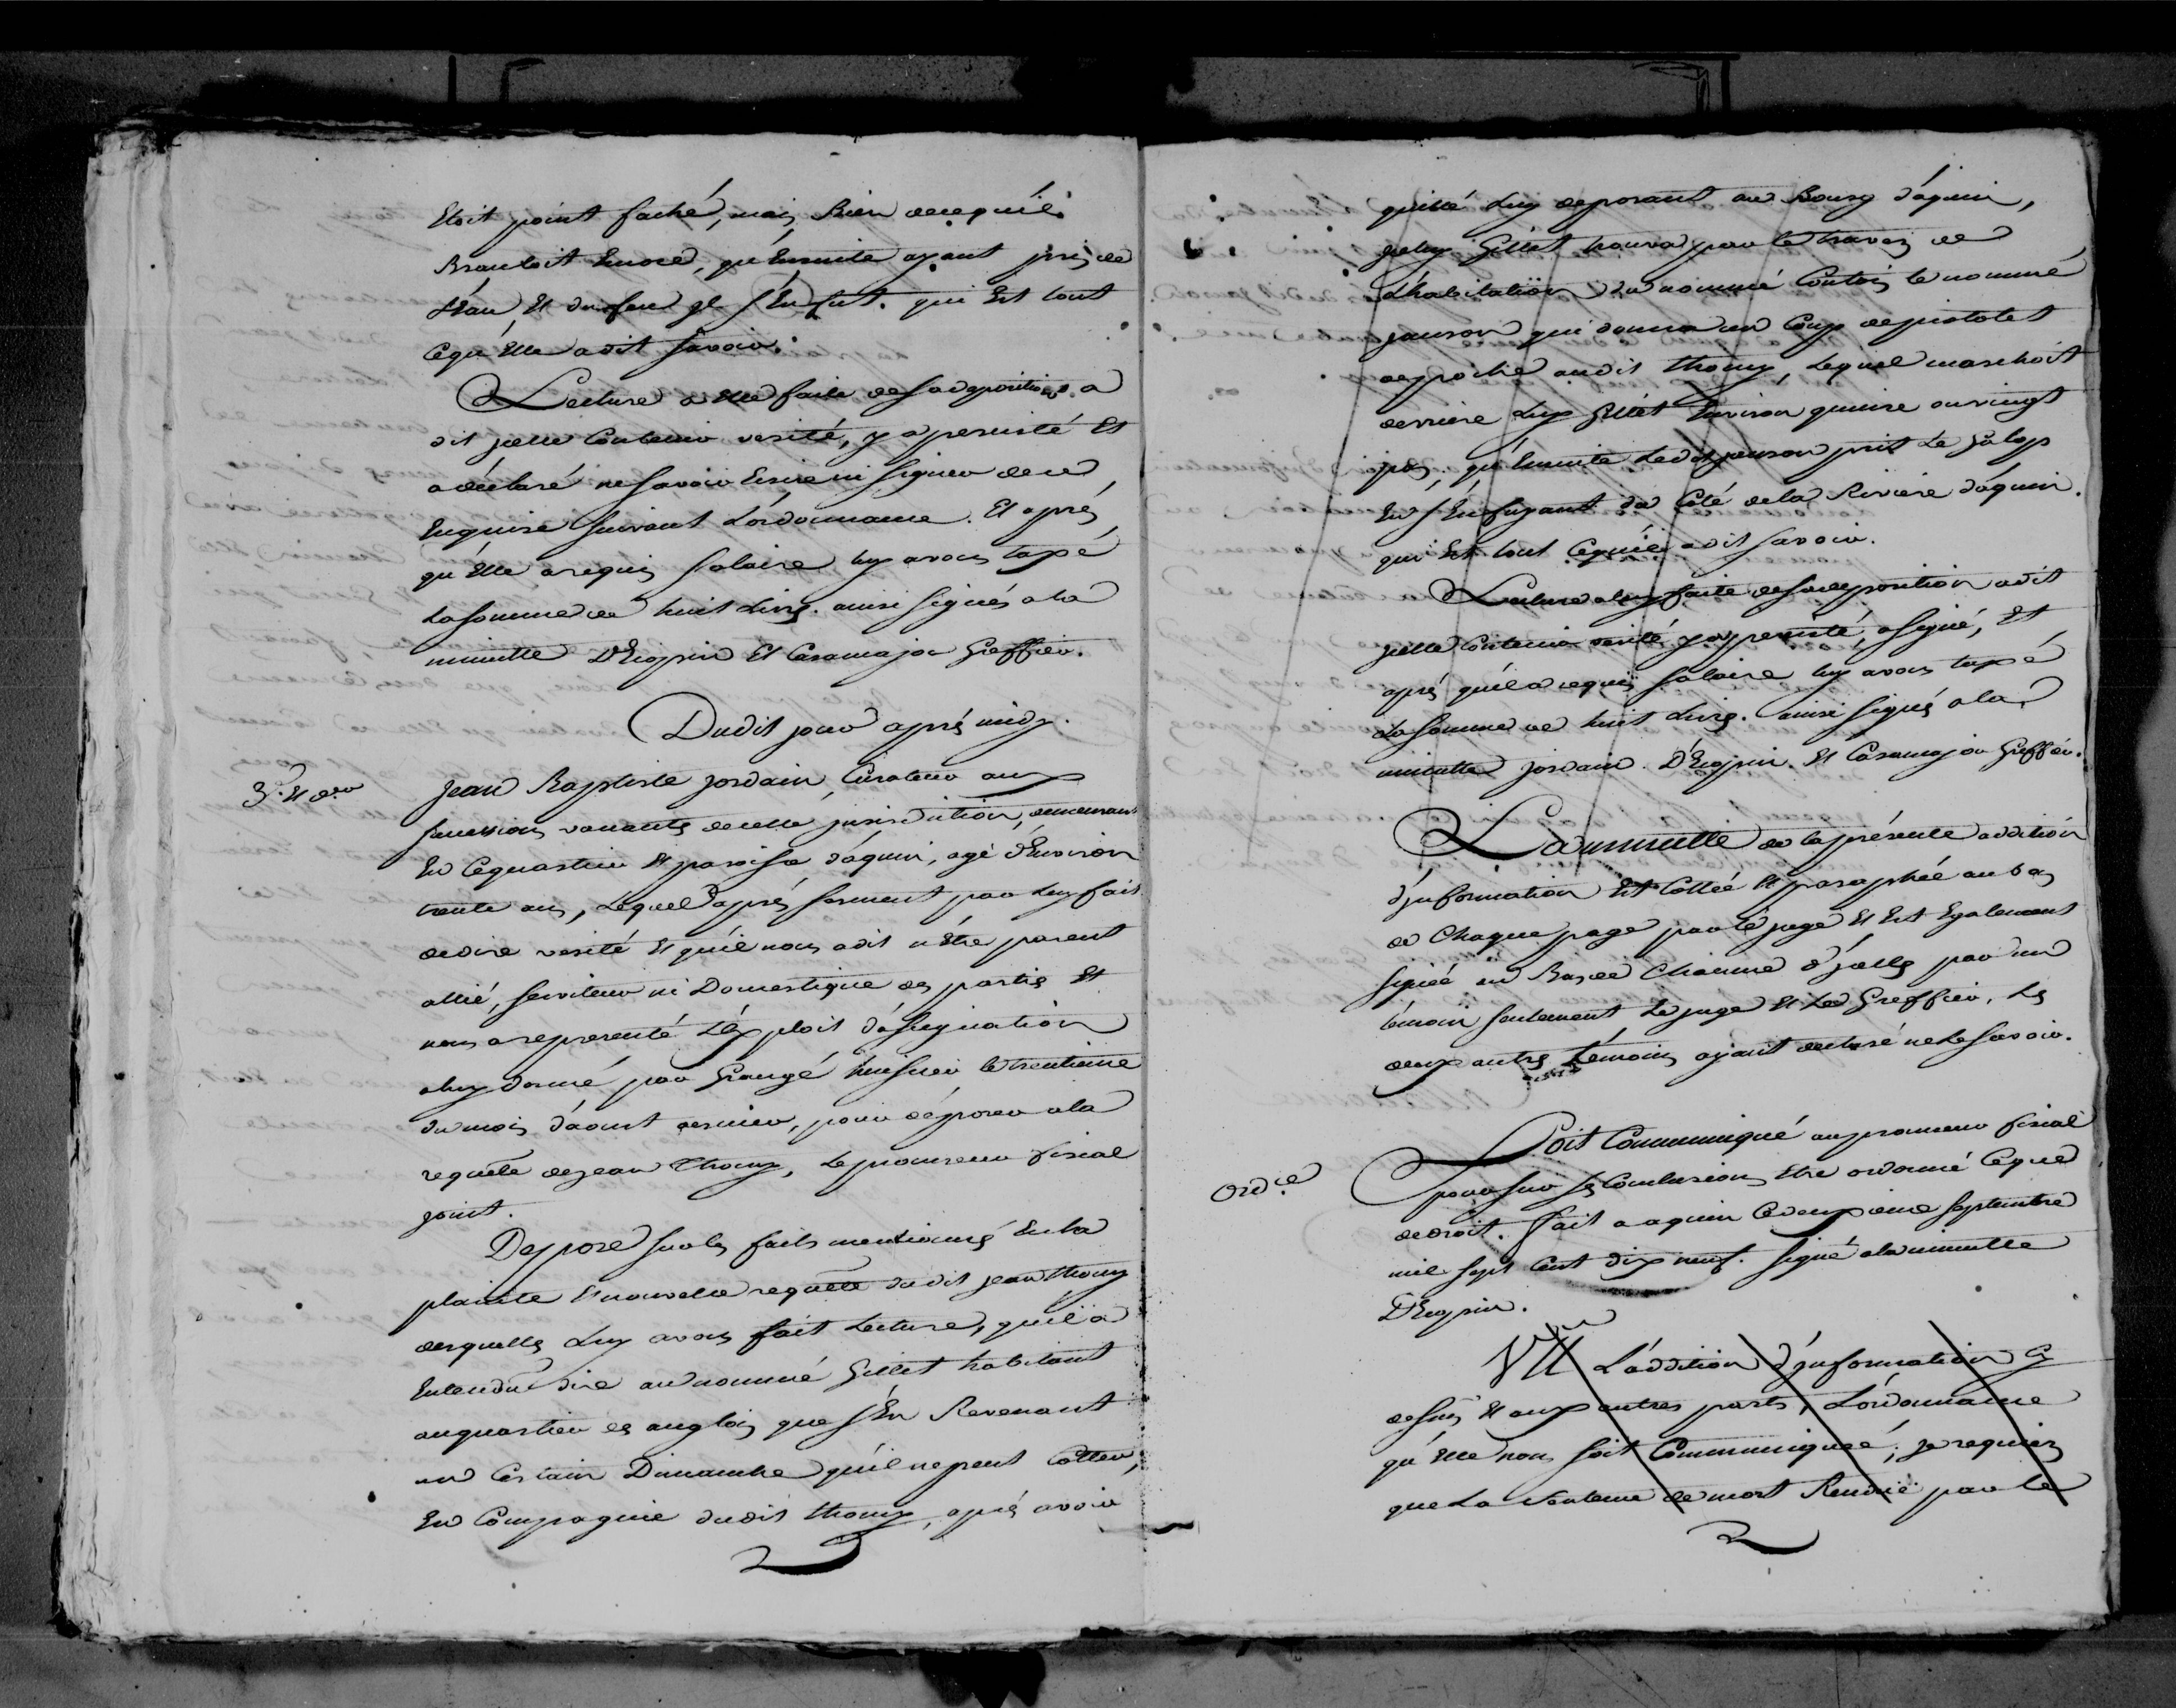 Etoit point faché, mais Rien de ce qu'il
Branloit Encore, qu'Ensuite ayant pris de
L'Eau Et du feu Il s'En fut. qui Est tout
Cequ'Elle a dit savoir.
Lecture a Elle faite de sa deposition. a
dit jcelle Contenir verité, y a persisté Et
a déclaré ne savoir Ecrire ni signer de ce
Enquise suivant L'ordonnance. Et aprés
qu'Elle a requis salaire luy avons taxé
La somme de huit Livs. ainsi signés a la
minutte D'Eispin Et Casamajor Greffier.
Dudit jour aprés midy.
3.e et der
Jean Baptiste jordain, Curateur aux
successions vacants de cette jurisdiction, demeurant
En Cequartier Et paroisse d'aquin, agé d'Environ
trente ans, Lequel aprés serment par Luy fait
de dire verité Et qu'il nous a dit n'Etre parent
allié, serviteur ni Domestique des partis Et
nous a representé L'Exploit d'assignation
a luy donné par Grangé huissier le trentieme
du mois d'aoust dernier, pour déposer a la
requête de jean Thomy, Le procureur fiscal
joint.
Depose sur les faits mentionnés En la
plainte Et nouvelle requête dudit jean thomy
desquelles Luy avons fait Lecture, qu'il a
Entendu dire au nommé Gillet habitant
au quartier des anglois que s'En Revenant
un Certain Dimanche qu'il ne peut Cotter,
En Compagnie dudit thomy, aprés avoir
quitté Luy deposant au Bourg d'aquin,
jceluy Gillet trouva par le travers de
L'habitation du nommé Contois le nommé
jauson qui donna un Coup de pistolet
de poche audit thomy, Lequel marchoit
derriere Luy Gillet Environ quinze ou vingt
pas, qu'Ensuite Ledit jauson prit Le Galop
En s'Enfuyant du Coté de la Riviere d'aquin.
qui Est tout Cequ'il a dit savoir.
Lecture a luy faite de sa deposition a dit
jcelle Contenir verité y a persisté, a signé, Et
aprés qu'il a requis salaire luy avons taxé
La somme de huit Livs. ainsi signés a la
minutte jordain. D'Eispin. Et Casamajor Greffier.
La minutte de la présente addition
d'jnformation Est Cottée Et paraphée au bas
de Chaque page par le juge Et Est Egalement
signée au Bas de Chacune d'jcelles par un
témoin seulement Le juge Et Le Greffier, Les
deux autres témoins ayant declaré ne le savoir.
Ord.ce
Soit Communiqué au procureur fiscal
pour sur ses Conclusions Etre ordonné Ceque
de droit. fait a aquin Cedeuxieme septembre
mil sept Cent dix neuf. signé a la minutte
D'Eispin.
VU L'addition d'jnformation Cy
dessus Et aux autres parts, L'ordonnance
qu'Elle nous soit Communiquée; je requiers
que La sentence de mort Renduë par le